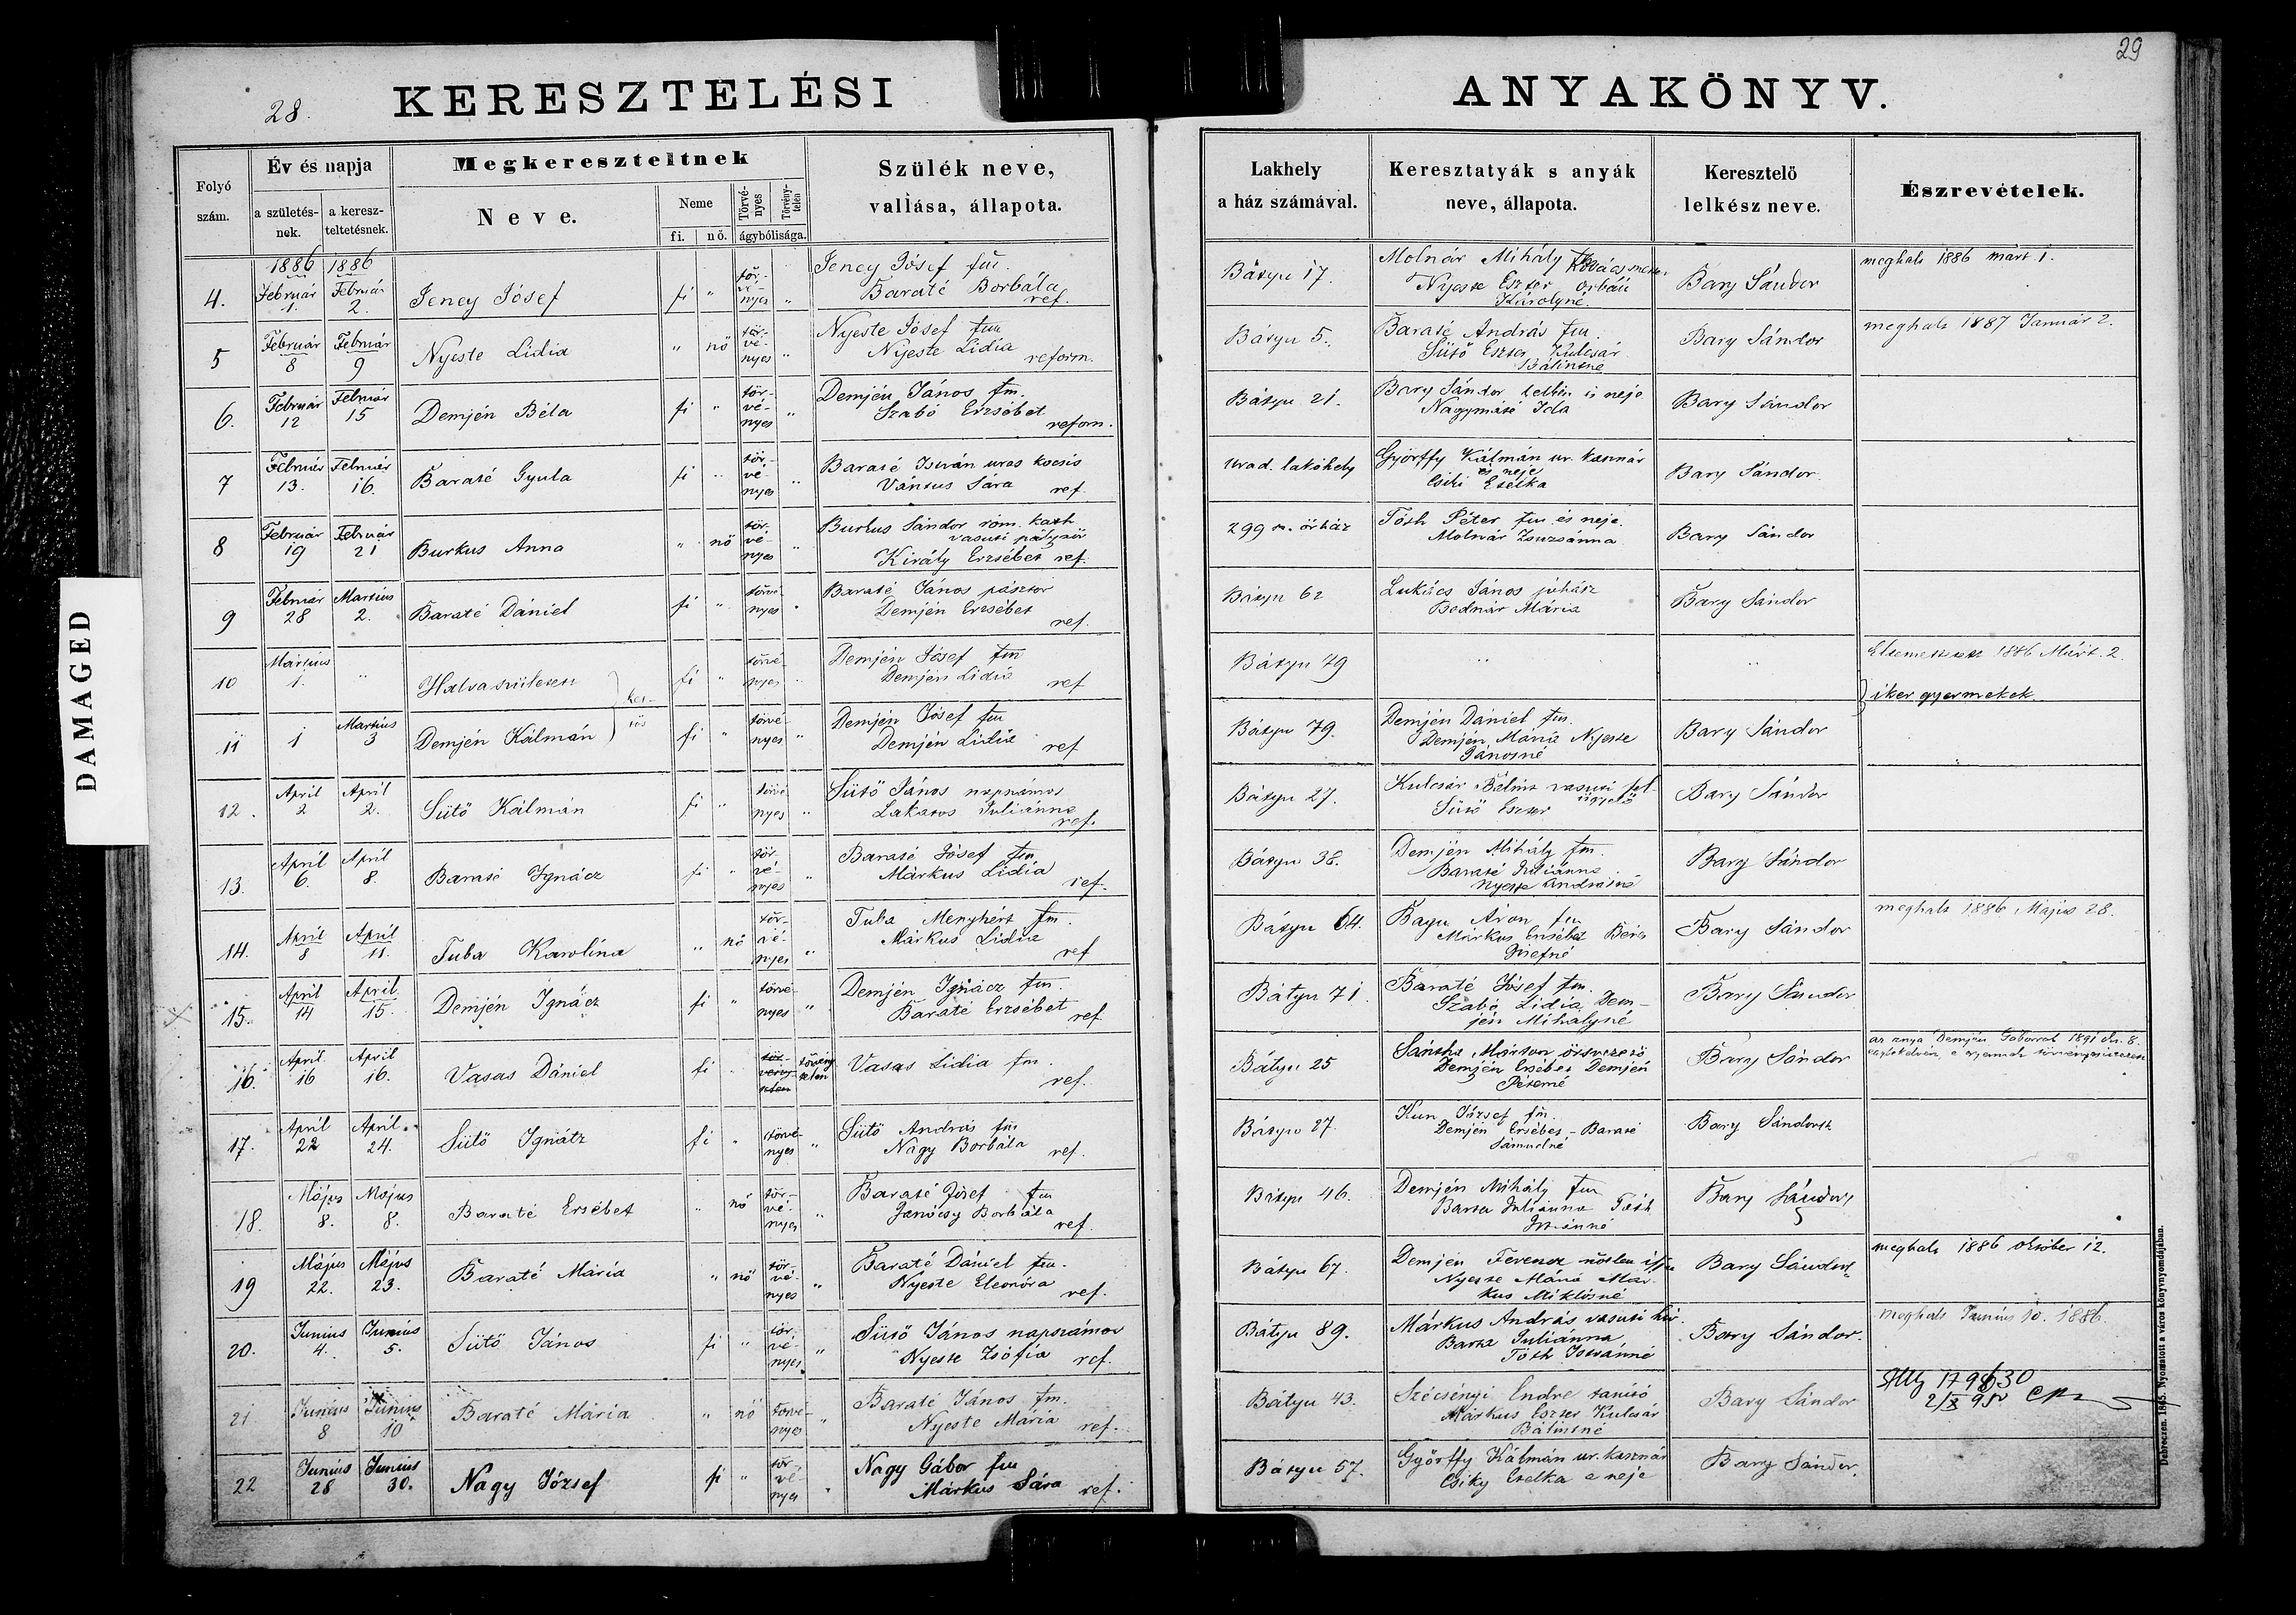 28.
KERESZTELÉSI
Folyó szám.
Év és napja
a születés-nek.
a keresz-teltetésnek.
Megkereszteltnek
Neve.
Neme
fi.
nő.
Törvé-nyes
Törvény-telen
ágybólisága.
Szülék neve,
vallása, állapota.
1886 1886
4. Február 1. Február 2. Jeney Jósef fi " tör-vé-nyes " Jeney Jósef fm.
Baraté Borbála ref.
5 Február 8 Február 9 Nyeste Lidia " nő tör-vé-nyes " Nyeste Jósef fm
Nyeste Lidia reform.
6. Február 12 Február 15 Demjén Béla fi " tör-vé-nyes " Demjén János fm.
Szabó Erzsébet reform.
7 Február 13. Február 16. Baraté Gyula fi " tör-vé-nyes " Baraté István uras kocsis
Vántus Sára ref.
8 Február 19 Február 21 Burkus Anna " nő tör-vé-nyes " Burkus Sándor róm. kath
vasuti pályaőr
Király Erzsébet ref.
9 Február 28 Martius 2. Baraté Dániel fi " törvé-nyes " Baraté János pásztor
Demjén Erzsébet ref.
10 Mártius 1. " Halva született fi " törvé-nyes " Demjén Jósef fm
Demjén Lidia ref
ket-tős
11 1 Martius 3 Demjén Kálmán fi " törvé-nyes " Demjén Jósef fm
Demjén Lidia ref
12. April 2 April 2. Sütő Kálmán fi " törvé-nyes " Sütő János napszámos
Lakatos Juliánna ref.
13. April 6. April 8. Baraté Ignácz fi " tör-vé-nyes " Baraté Jósef fm
Márkus Lidia ref.
14. April 8 April 11. Tuba Karolina " nő tör-vé-nyes " Tuba Menyhért fm.
Márkus Lidia ref
15. April 14 April 15. Demjén Ignácz fi " törvé-nyes " Demjén Ignácz fm.
Baraté Erzsébet ref
16. April 16 April 16. Vasas Dániel fi törvény-telen Vasas Lidia fm.
ref.
17. April 22 April 24. Sütő Ignátz fi " törvé-nyes " Sütő András fm
Nagy Borbála ref.
18. Május 8. Május 8. Baraté Ersébet " nő tör-vé-nyes " Baraté Jósef fm
Janócsy Borbála ref.
19 Május 22. Május 23. Baraté Mária " nő tör-vé-nyes " Baraté Dániel fm.
Nyeste Eleonóra ref.
20. Junius 4. Junius 5. Sütő János fi " tör-vé-nyes " Sütő János napszámos
Nyeste Zsófia ref.
21 Junius 8 Junius 10 Baraté Mária " nő törvé-nyes " Baraté János fm.
Nyeste Mária ref.
22 Junius 28 Junius 30. Nagy József fi " tör-vé-nyes " Nagy Gábor fm
Márkus Sára ref.
DAMAGED
29
ANYAKÖNYV.
Lakhely
a ház számával.
Keresztatyák s anyák
neve, állapota.
Keresztelő
lelkész neve.
Észrevételek.
Bátyu 17. Molnár Mihály Kovácsmester
Nyeste Eszter Orbán
Károlyné. Bary Sándor meghalt 1886 márt 1.
Bátyu 5. Baraté András fm
Sütő Eszter Kulcsár
Bálintné Bary Sándor meghalt 1887 Január 2.
Bátyu 21. Bary Sándor lelkész és neje
Nagymáté Ida Bary Sándor
urad. lakóhely Győrffy Kálmán ur. kasznár
és neje
Csiki Etelka Bary Sándor.
299 sz. őrház Tóth Péter fm. és neje
Molnár Zsuzsánna Bary Sándor
Bátyu 62 Lukács János juhász
Bodnár Mária Bary Sándor
Bátyu 79 " " Eltemettetett 1886 Márt. 2.
iker gyermekek.
Bátyu 79. Demjén Dániel fm.
Demjén Mária Nyeste
Jánosné Bary Sándor
Bátyu 27. Kulcsár Bálint vasuti fel-
ügyelő
Sütő Eszter Bary Sándor
Bátyu 38. Demjén Mihály fm.
Baraté Juliánna
Nyeste Andrásné Bary Sándor
Bátyu 64. Áron fm
Márkus Ersébet
Jósefné Bary Sándor meghalt 1886 Május 28.
Bátyu 71. Baraté Jósef fm.
Szabó Lidia Dem-
jén Mihályné Bary Sándor
Bátyu 25 Márton őrsvezető
Demjén Erzsébet Demjén
Péterné Bary Sándor az anya Demjén Gáborral 1891
Bátyu 27. Kun József fm.
Demjén Ersébet - Baraté
Sámuelné Bary Sándor
Bátyu 46. Demjén Mihály fm
Barta Juliánna Tóth
Istvánné Bary Sándor
Bátyu 67. Demjén Ferencz nőtlen ifju
Nyeste Mária Már-
kus Miklósné Bary Sándor meghalt 1886 október 12.
Bátyu 89. Márkus András vasuti
Barta Juliánna
Tóth Istvánné Bary Sándor. meghalt Junius 10. 1886.
Bátyu 43. Szécsényi Endre tanító
Márkus Eszter Kulcsár
Bálintné Bary Sándor
Bátyu 57. Győrffy Kálmán ur. kasznár
Csiky Etelka a neje Bary Sándor.
Debreczen. 1865. Nyomatott a város könyvnyomdájában.